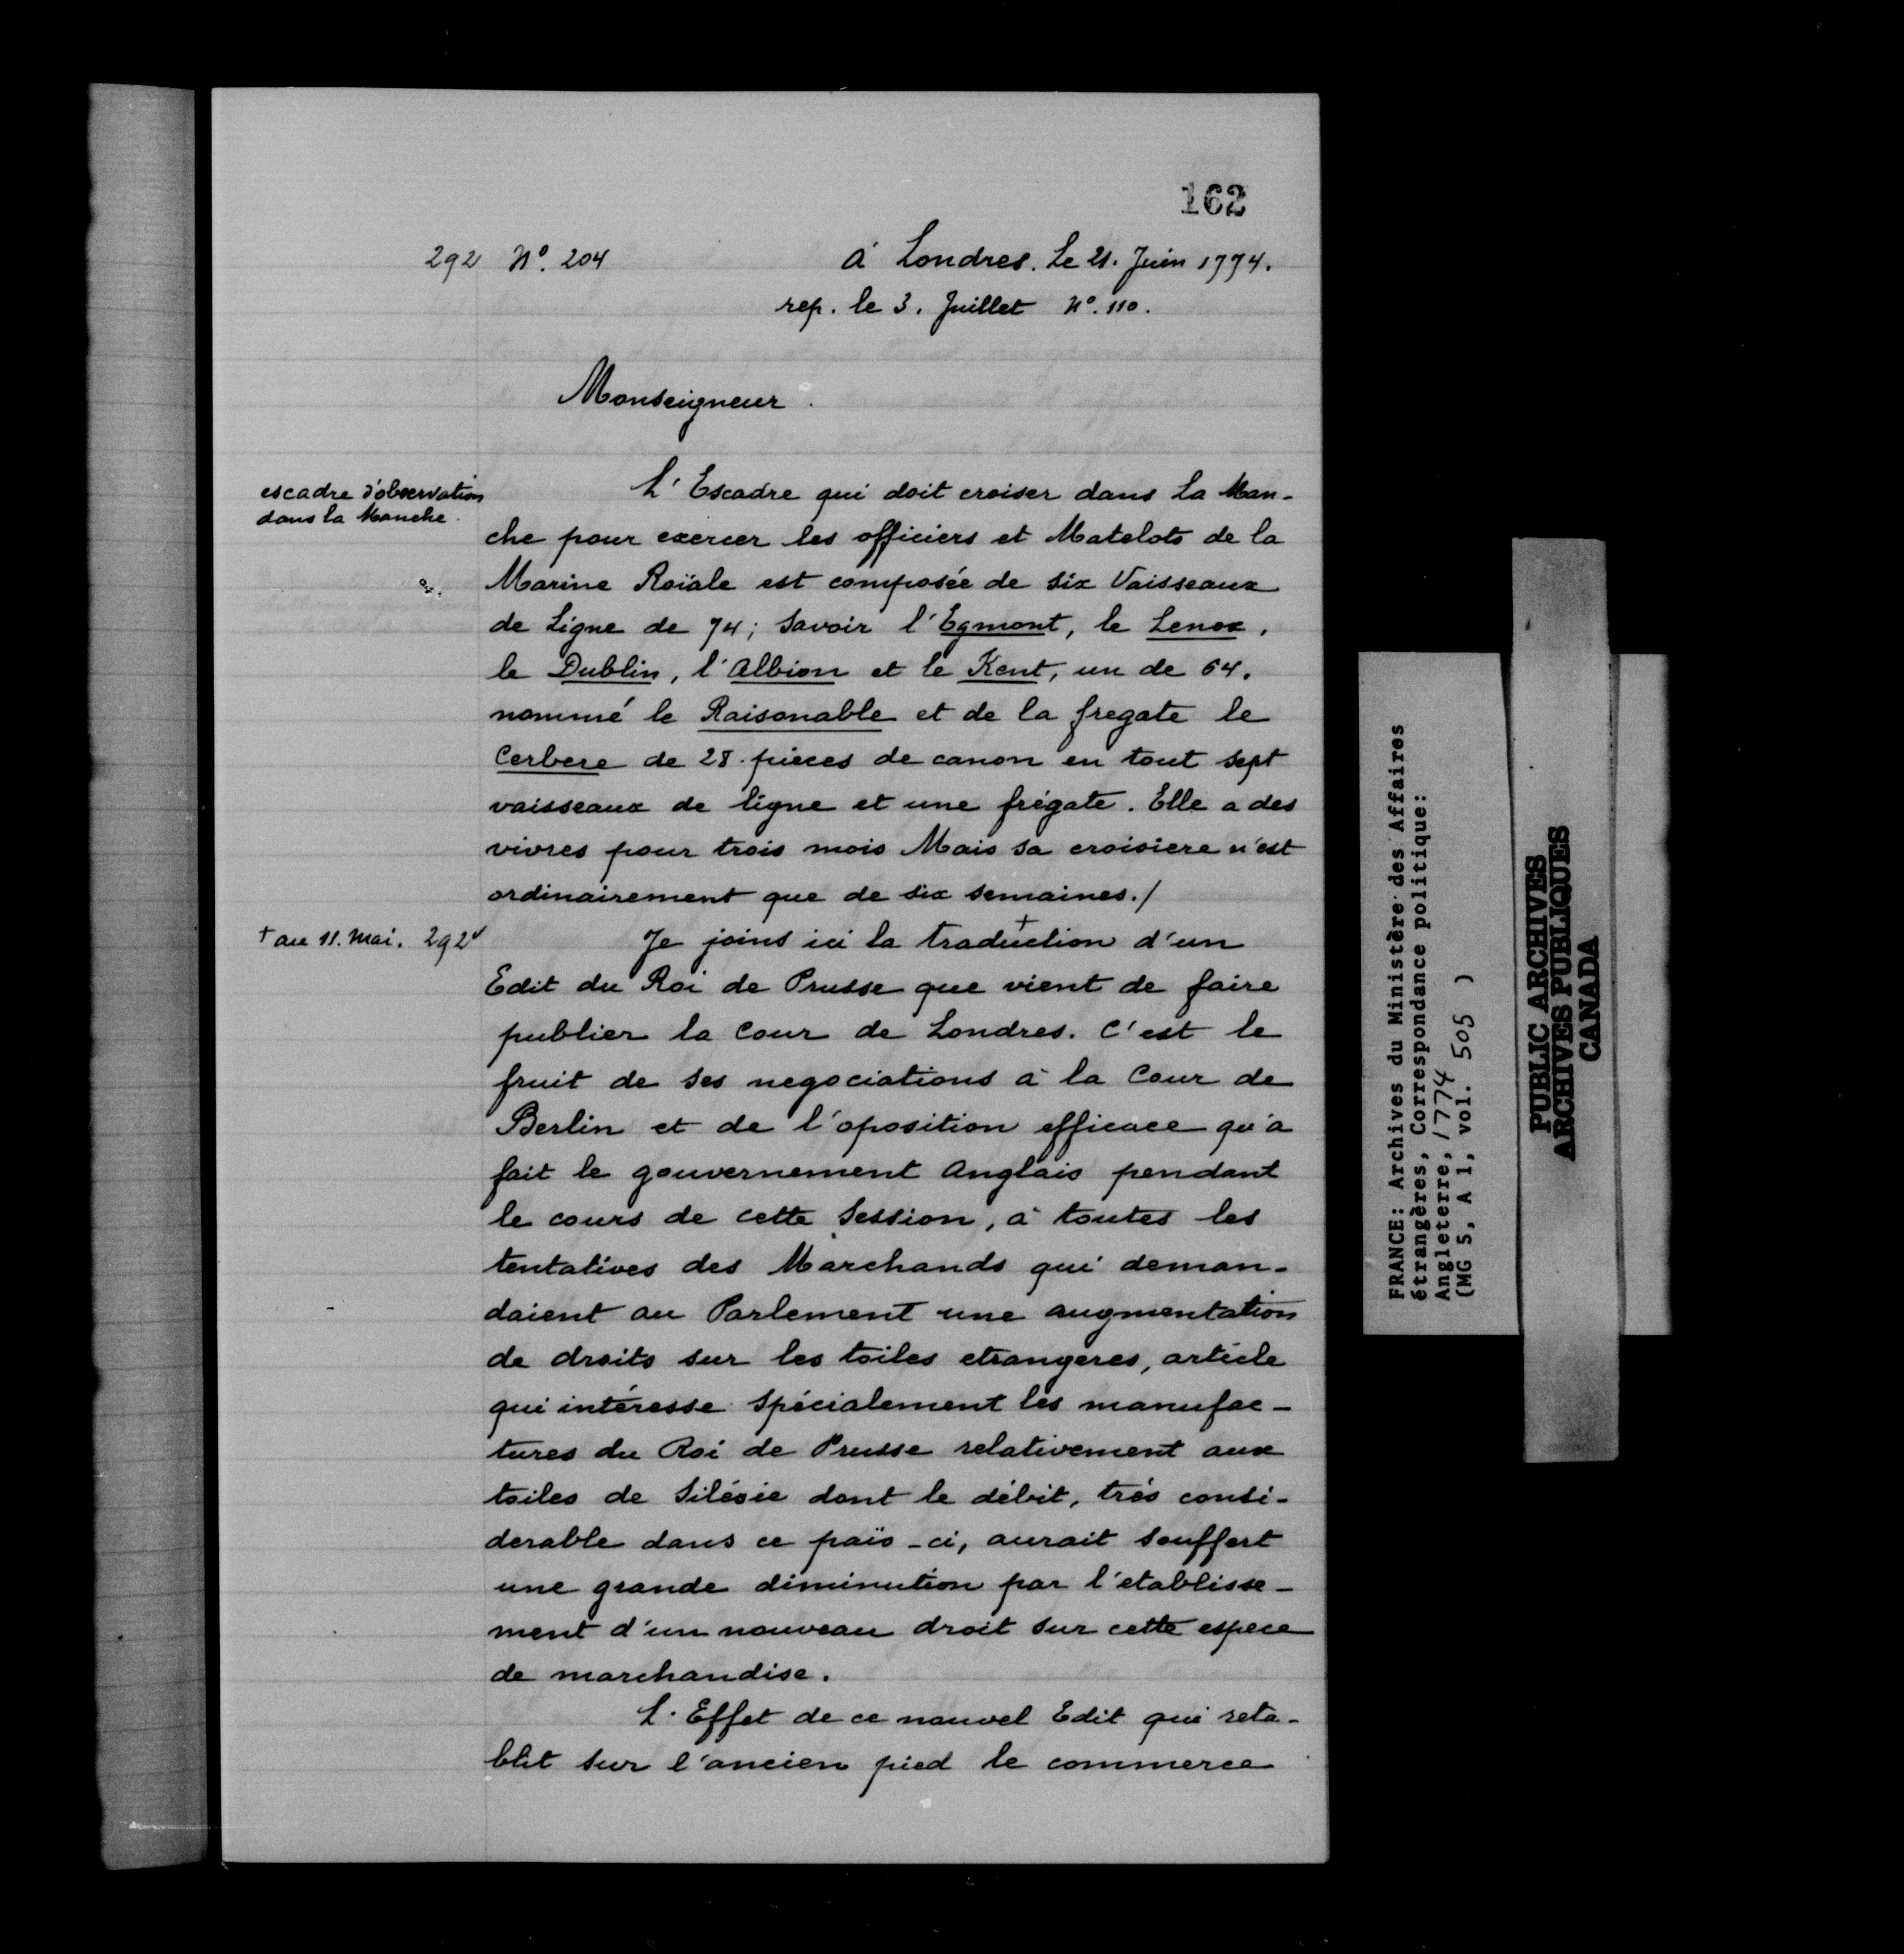 162
292 N°. 204 à Londres. Le 21. Juin 1774.
rep. le 3. Juillet N°. 110.
Monseigneur.
escadre d'observation
dans la Manche.
L'Escadre qui doit croiser dans la Man-
che pour exercer les officiers et Matelots de la
Marine Roïale est composée de six Vaisseaux
de Ligne de 74; savoir l'Egmont, le Lenox,
le Dublin, l'Albion et le Kent, un de 64.
nommé le Raisonable et de la fregate le
Cerbere de 28. pièces de canon en tout sept
vaisseaux de ligne et une frégate. Elle a des
vivres pour trois mois Mais sa croisiere n'est
ordinairement que de six semaines./
+ au 11. Mai. 292v Je joins ici la traduction + d'un
Edit du Roi de Prusse que vient de faire
publier la Cour de Londres. C'est le
fruit de ses negociations à la Cour de
Berlin et de l'oposition efficace qu'a
fait le gouvernement Anglais pendant
le cours de cette Session, à toutes les
tentatives des Marchands qui deman-
daient au Parlement une augmentation
de droits sur les toiles etrangeres, article
qui intéresse spécialement les manufac-
tures du Roi de Prusse relativement aux
toiles de Silésie dont le débit, très consi-
derable dans ce païs-ci, aurait souffert
une grande diminution par l'etablisse-
ment d'un nouveau droit sur cette espece
de marchandise.
L'Effet de ce nouvel Edit qui reta-
blit sur l'ancien pied le commerce
FRANCE: Archives du Ministère des Affaires
étrangères, Correspondance politique:
Angleterre, 1774
(MG 5, A 1, vol. 505 )
PUBLIC ARCHIVES
ARCHIVES PUBLIQUES
CANADA